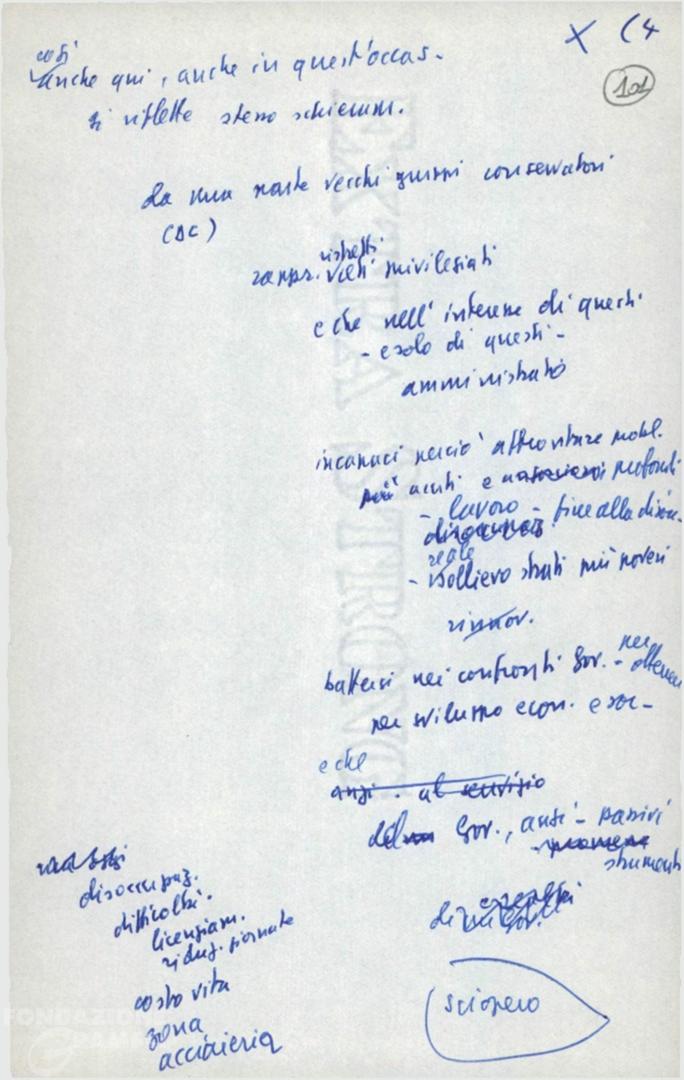 X (4
101
così
anche qui, anche in quest'occas.
si riflette stesso schieram.
da una parte vecchi gruppi conservatori
(DC)
ristretti
rappr. privilegiati
e che nell'interesse di questi
- e solo di questi -
amministrato
incapaci perciò affrontare probl.
più acuti e profondi
- lavoro - fine alla disoc.
disoccupaz.
reale
- sollievo strati più poveri
rinnov.
battersi nei confronti Gov. - per ottenere
per sviluppo econ. e soc -
e che
anzi . al servizio
del Gov., anzi - passivi
strumenti
di
disoccupaz.
difficoltà.
licenziam.
riduz. giornate
costo vita
zona
acciaieria
sciopero
EXTRA STRONG
FONDAZIONE